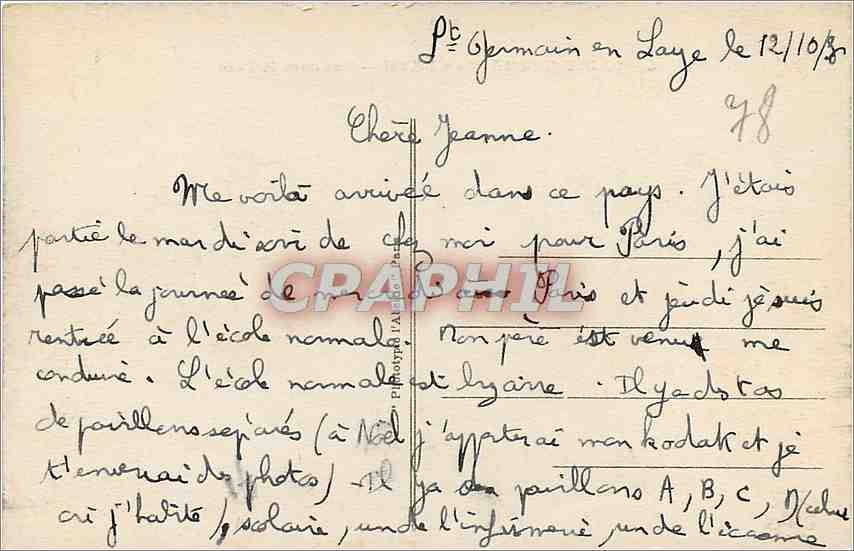 St Germain en Laye le 12/10/3
78
Chère Jeanne.
Me voilà arrivée dans ce pays. J'étais
partie le mardi soir de chez moi pour Paris, j'ai
passé la journée de mercredi Paris et jeudi je suis
rentrée à l'école normale. Mon père est venu me
conduire. L'école normale est bizarre. Il y a des tas
de pavillons séparés (à Noël j'apporterai mon kodak et je
t'enverrai des photos) Il y a pavillons A, B, C, D (celui
où j'habite), scolaire, un de l'infirmerie, un de l'économe
Phototypie l'Abeille Paris
CPARAMA